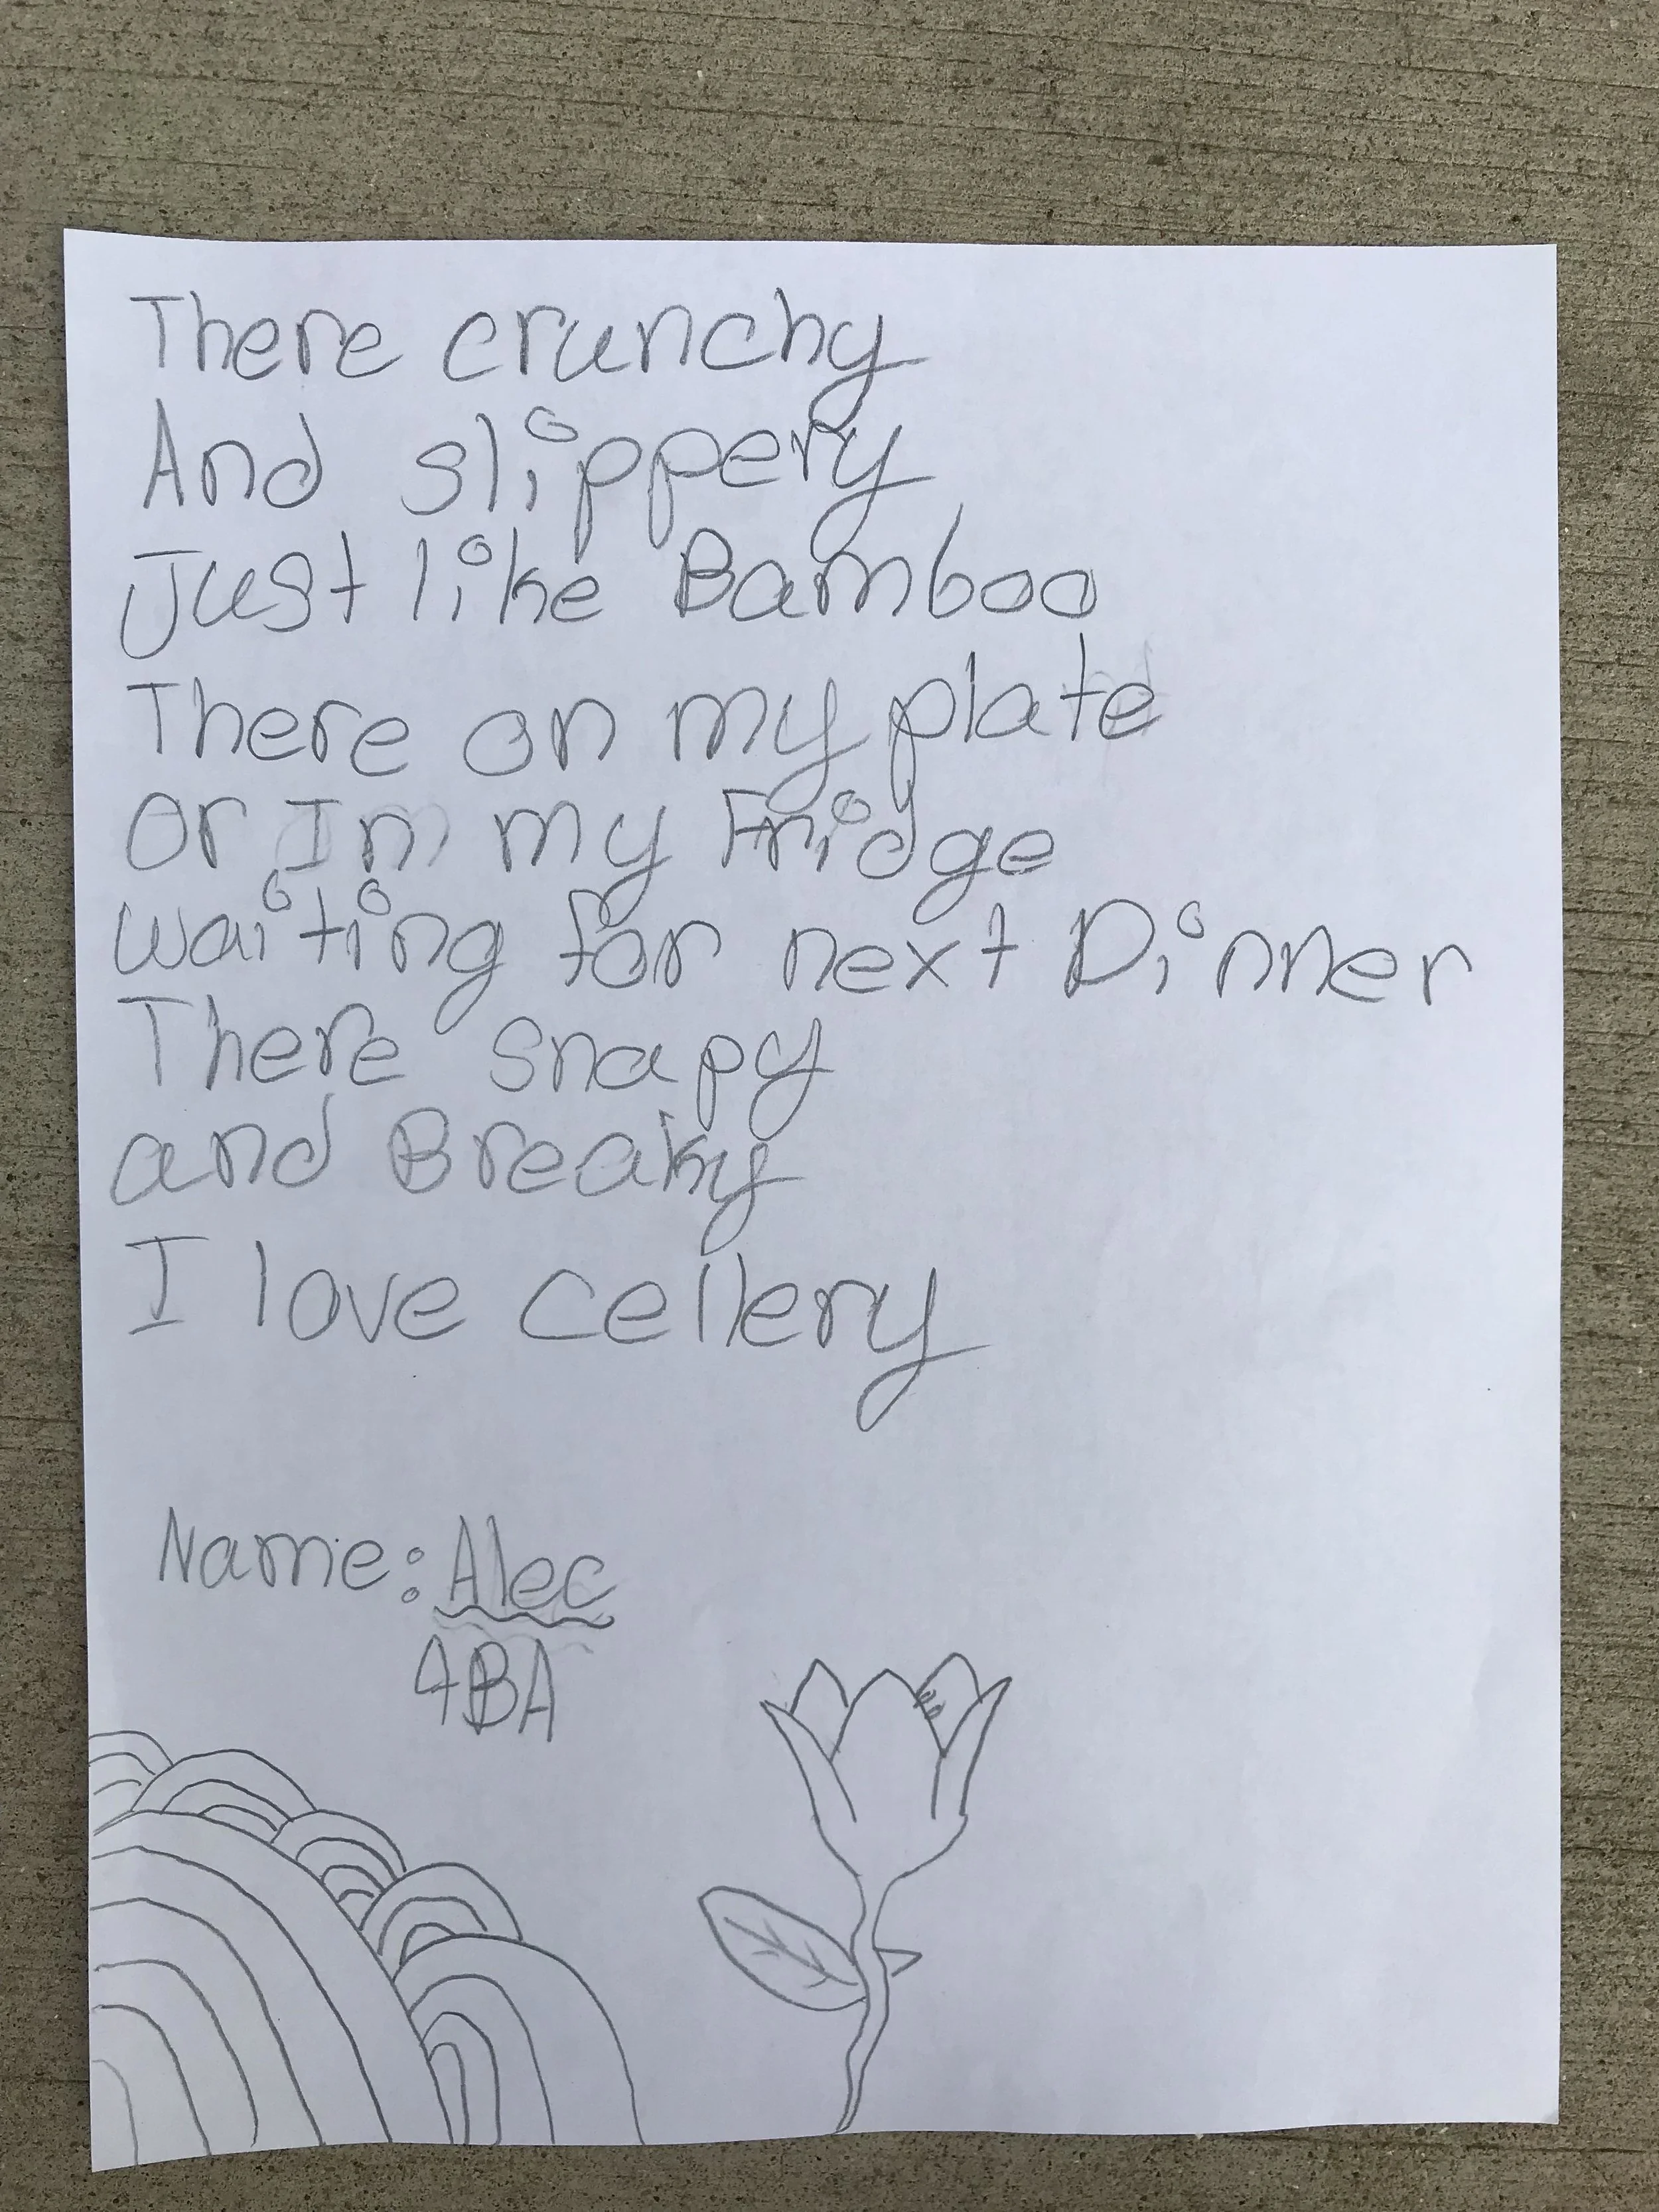 There crunchy
And slippery
Just like Bamboo
There on my plate
or In my Fridge
waiting for next Dinner
There snapy
and Breaky
I love cellery
Name: Alec
4BA